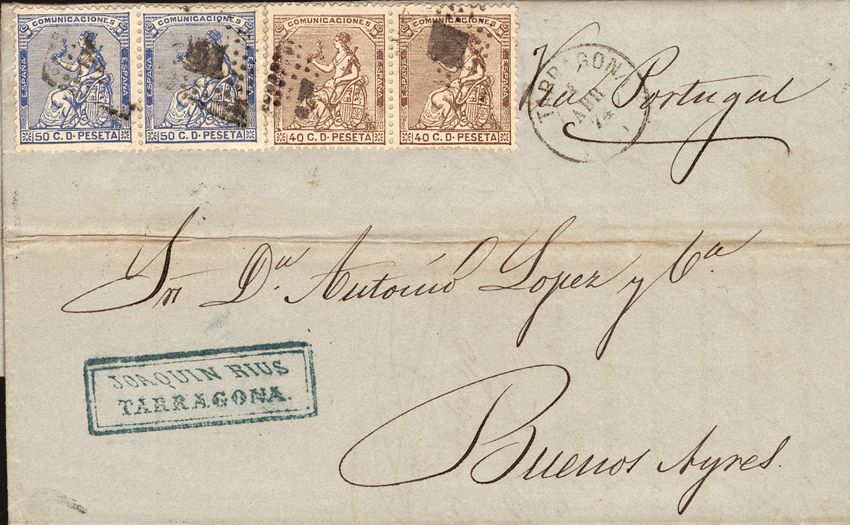 COMUNICACIONES COMUNICACIONES COMUNICACIONES COMUNICACIONES
ESPAÑA ESPAÑA ESPAÑA
50 C. D. PESETA 50 C. D. PESETA 40 C. D. PESETA 40 C. D. PESETA
TARRAGONA
ABR
74
Via Portugal
Sr. Dn. Antonio Lopez y Cia
JOAQUIN RIUS
TARRAGONA.
Buenos Ayres.